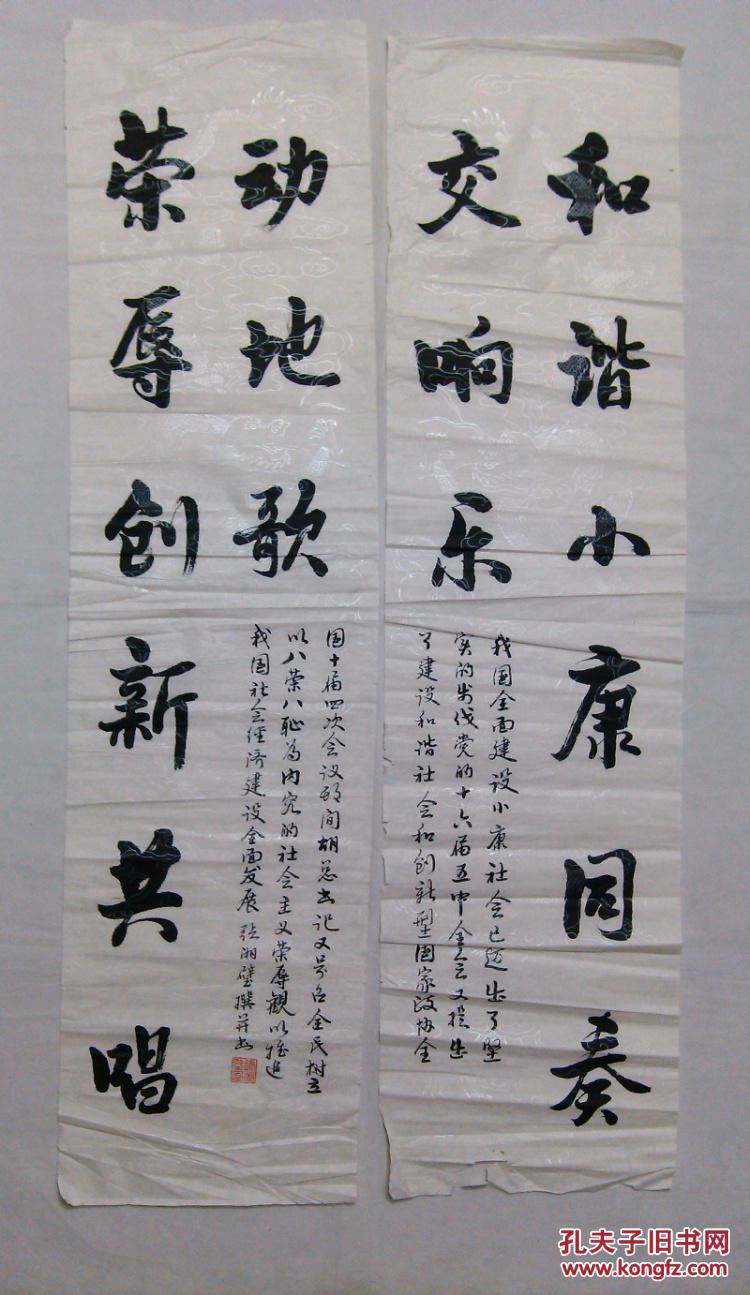 和谐小康同奏
交响乐
我国全面建设小康社会已迈出了坚
实的步伐党的十六届五中全会又提出
了建设和谐社会和创新型国家政协全
荣辱创新共唱
动地歌
国十届四次会议期间胡总书记又号召全民树立
以八荣八耻为内容的社会主义荣辱观以推进
我国社会经济建设全面发展 张湘璧撰并书
孔夫子旧书网
www.kongfz.com